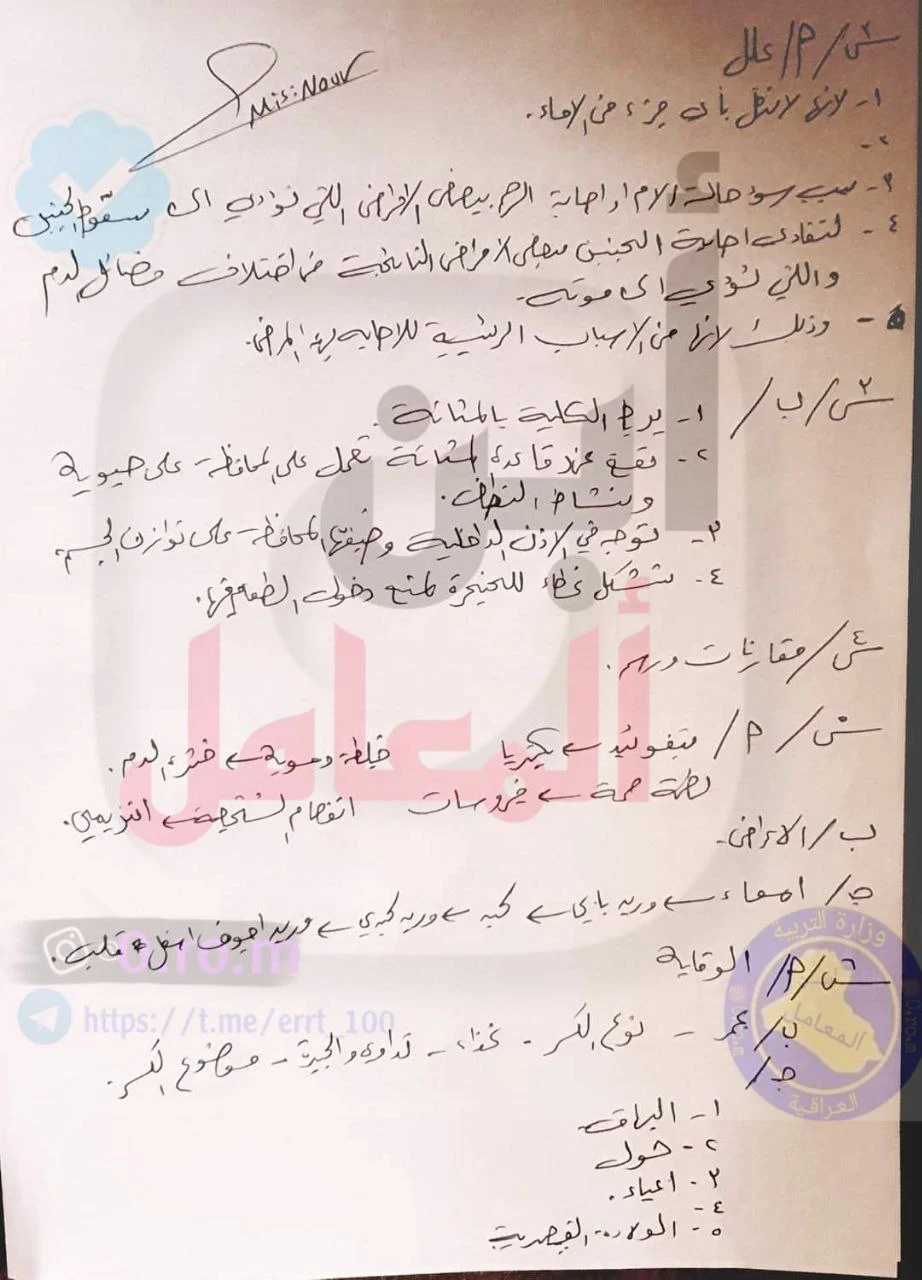 س٣/ P/ علل
Mis: Nour
١- لانها لا تتصل بأي جزء من الامعاء.
٢-
٣- سبب سوء حالة الام او اصابة الرحم ببعض الامراض اللتي تؤدي الى سقوط الجنين
٤- لتفادي اصابة الجنين ببعض الامراض الناتجة من اختلاف فصائل الدم
واللتي تؤدي الى موته.
٥- وذلك لانها من الاسباب الرئيسية للاصابه بهذا المرض.
س٣/ ب/ ١- يربط الكلية بالمثانة.
٢- تقع عند قاعدة المثانة تعمل على المحافظة على حيوية
ونشاط النطف.
٣- توجد في الاذن الداخلية وضيفتها المحافظة على توازن الجسم.
٤- تشكل غطاء للحنجرة لمنع دخول الطعام فيها.
س٤/ مقارنات ورسم.
س٥/ P/ تيفوئيد ← بكتريا خلطة دموية ← خثرة الدم.
لطمة حمة ← فيروسات انفصام الشخصية ←
ب/ الاعراض.
ج/ امعاء ← وريد بابي ← كبد ← وريد كبدي ← وريد اجوف اسفل ← قلب.
P/ الوقاية
ب/ عمر - نوع الكسر - غذاء - تداوي والجبيرة - موضوع الكسر.
ج/
١- البهاق
٢- حول
٣- اعياء.
٤-
٥- الولادة القيصرية
أبن
المعامل
orro.m
https://t.me/errt_100
وزارة التربية
المعامل
العراقية